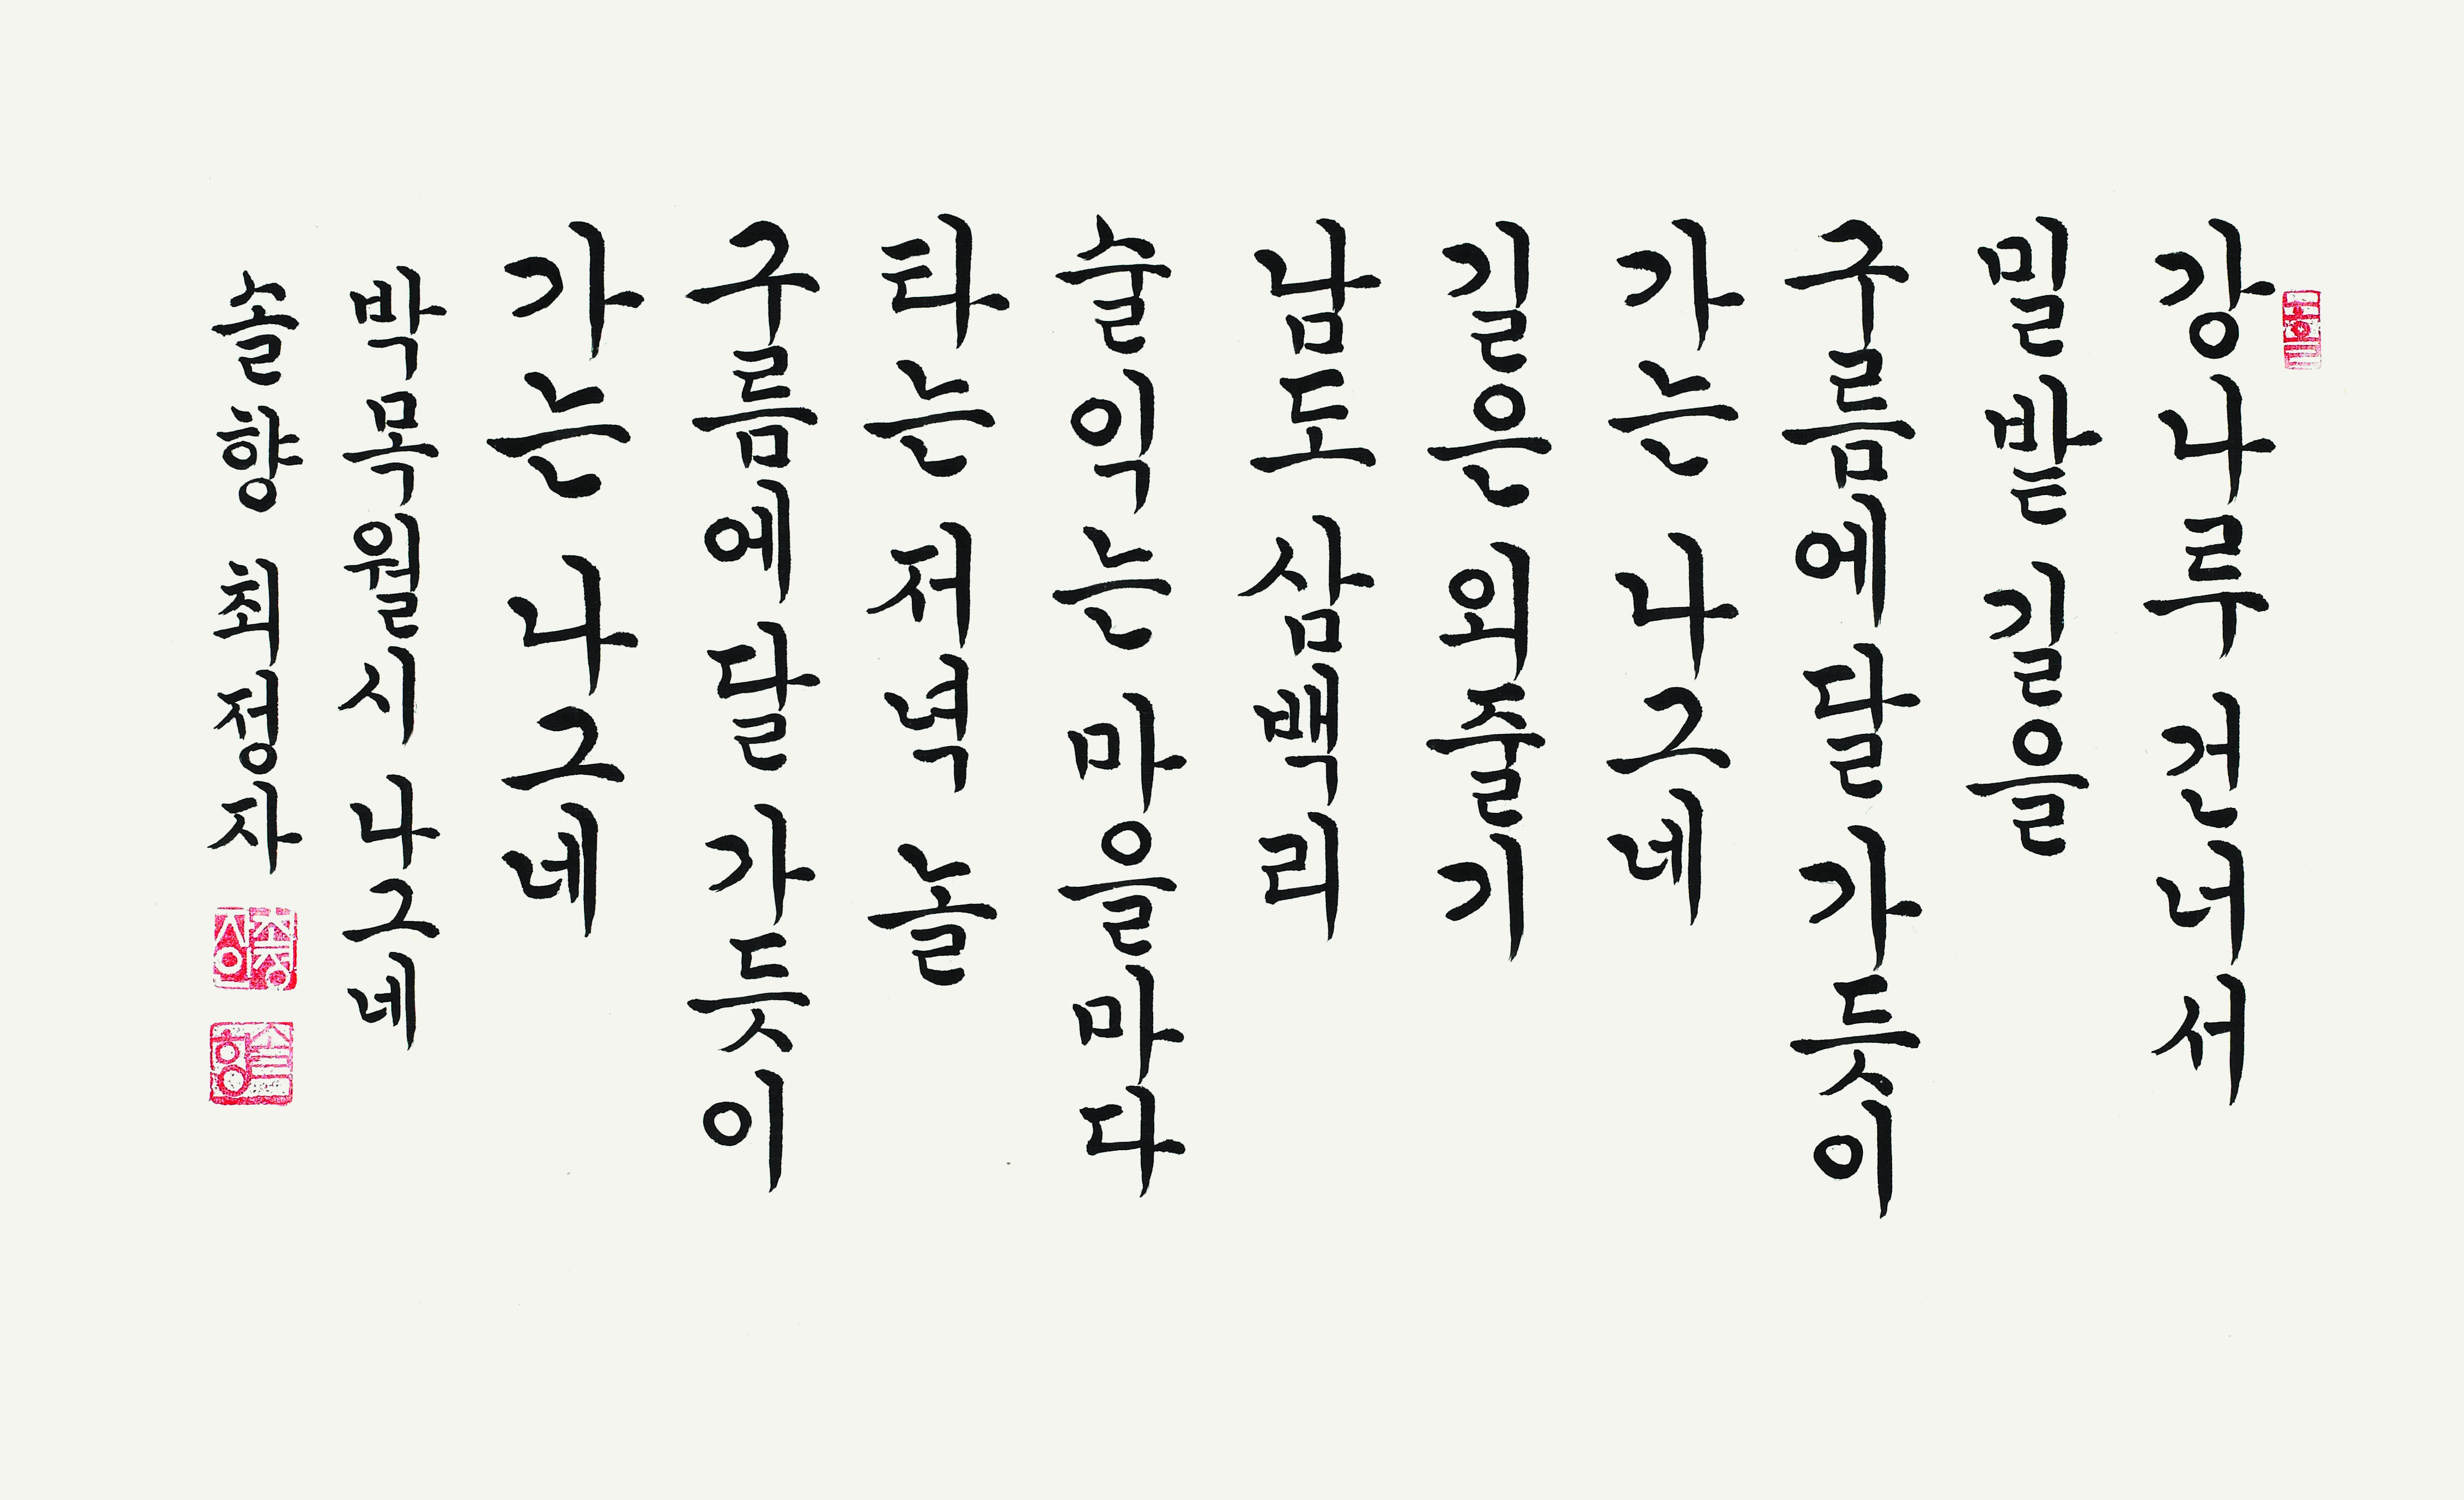 강나루 건너서
밀밭 길을
구름에 달 가듯이
가는 나그네
길은 외줄기
남도 삼백리
술 익는 마을마다
타는 저녁 놀
구름에 달 가듯이
가는 나그네
박목월 시 나그네
솔향 최정자